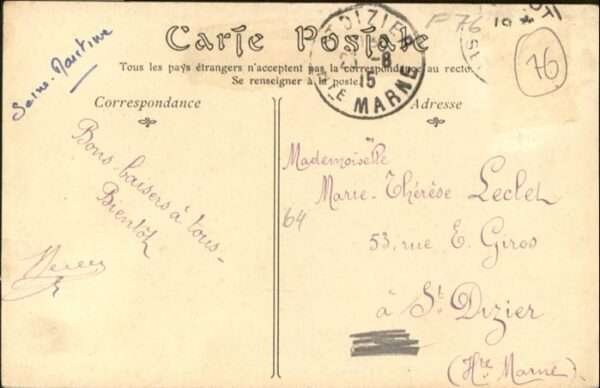 Seine-Maritime
Carte Postale
Tous les pays étrangers n'acceptent pas la correspondance au recto.
Se renseigner à la poste.
Correspondance
Adresse
DIZIER
8
15
HTE MARNE
F 76
10
76
Bons baisers à tous-
Bientôt
64
Mademoiselle
Marie-Thérèse Leclet
53, rue E. Giros
à St. Dizier
(Hte Marne).